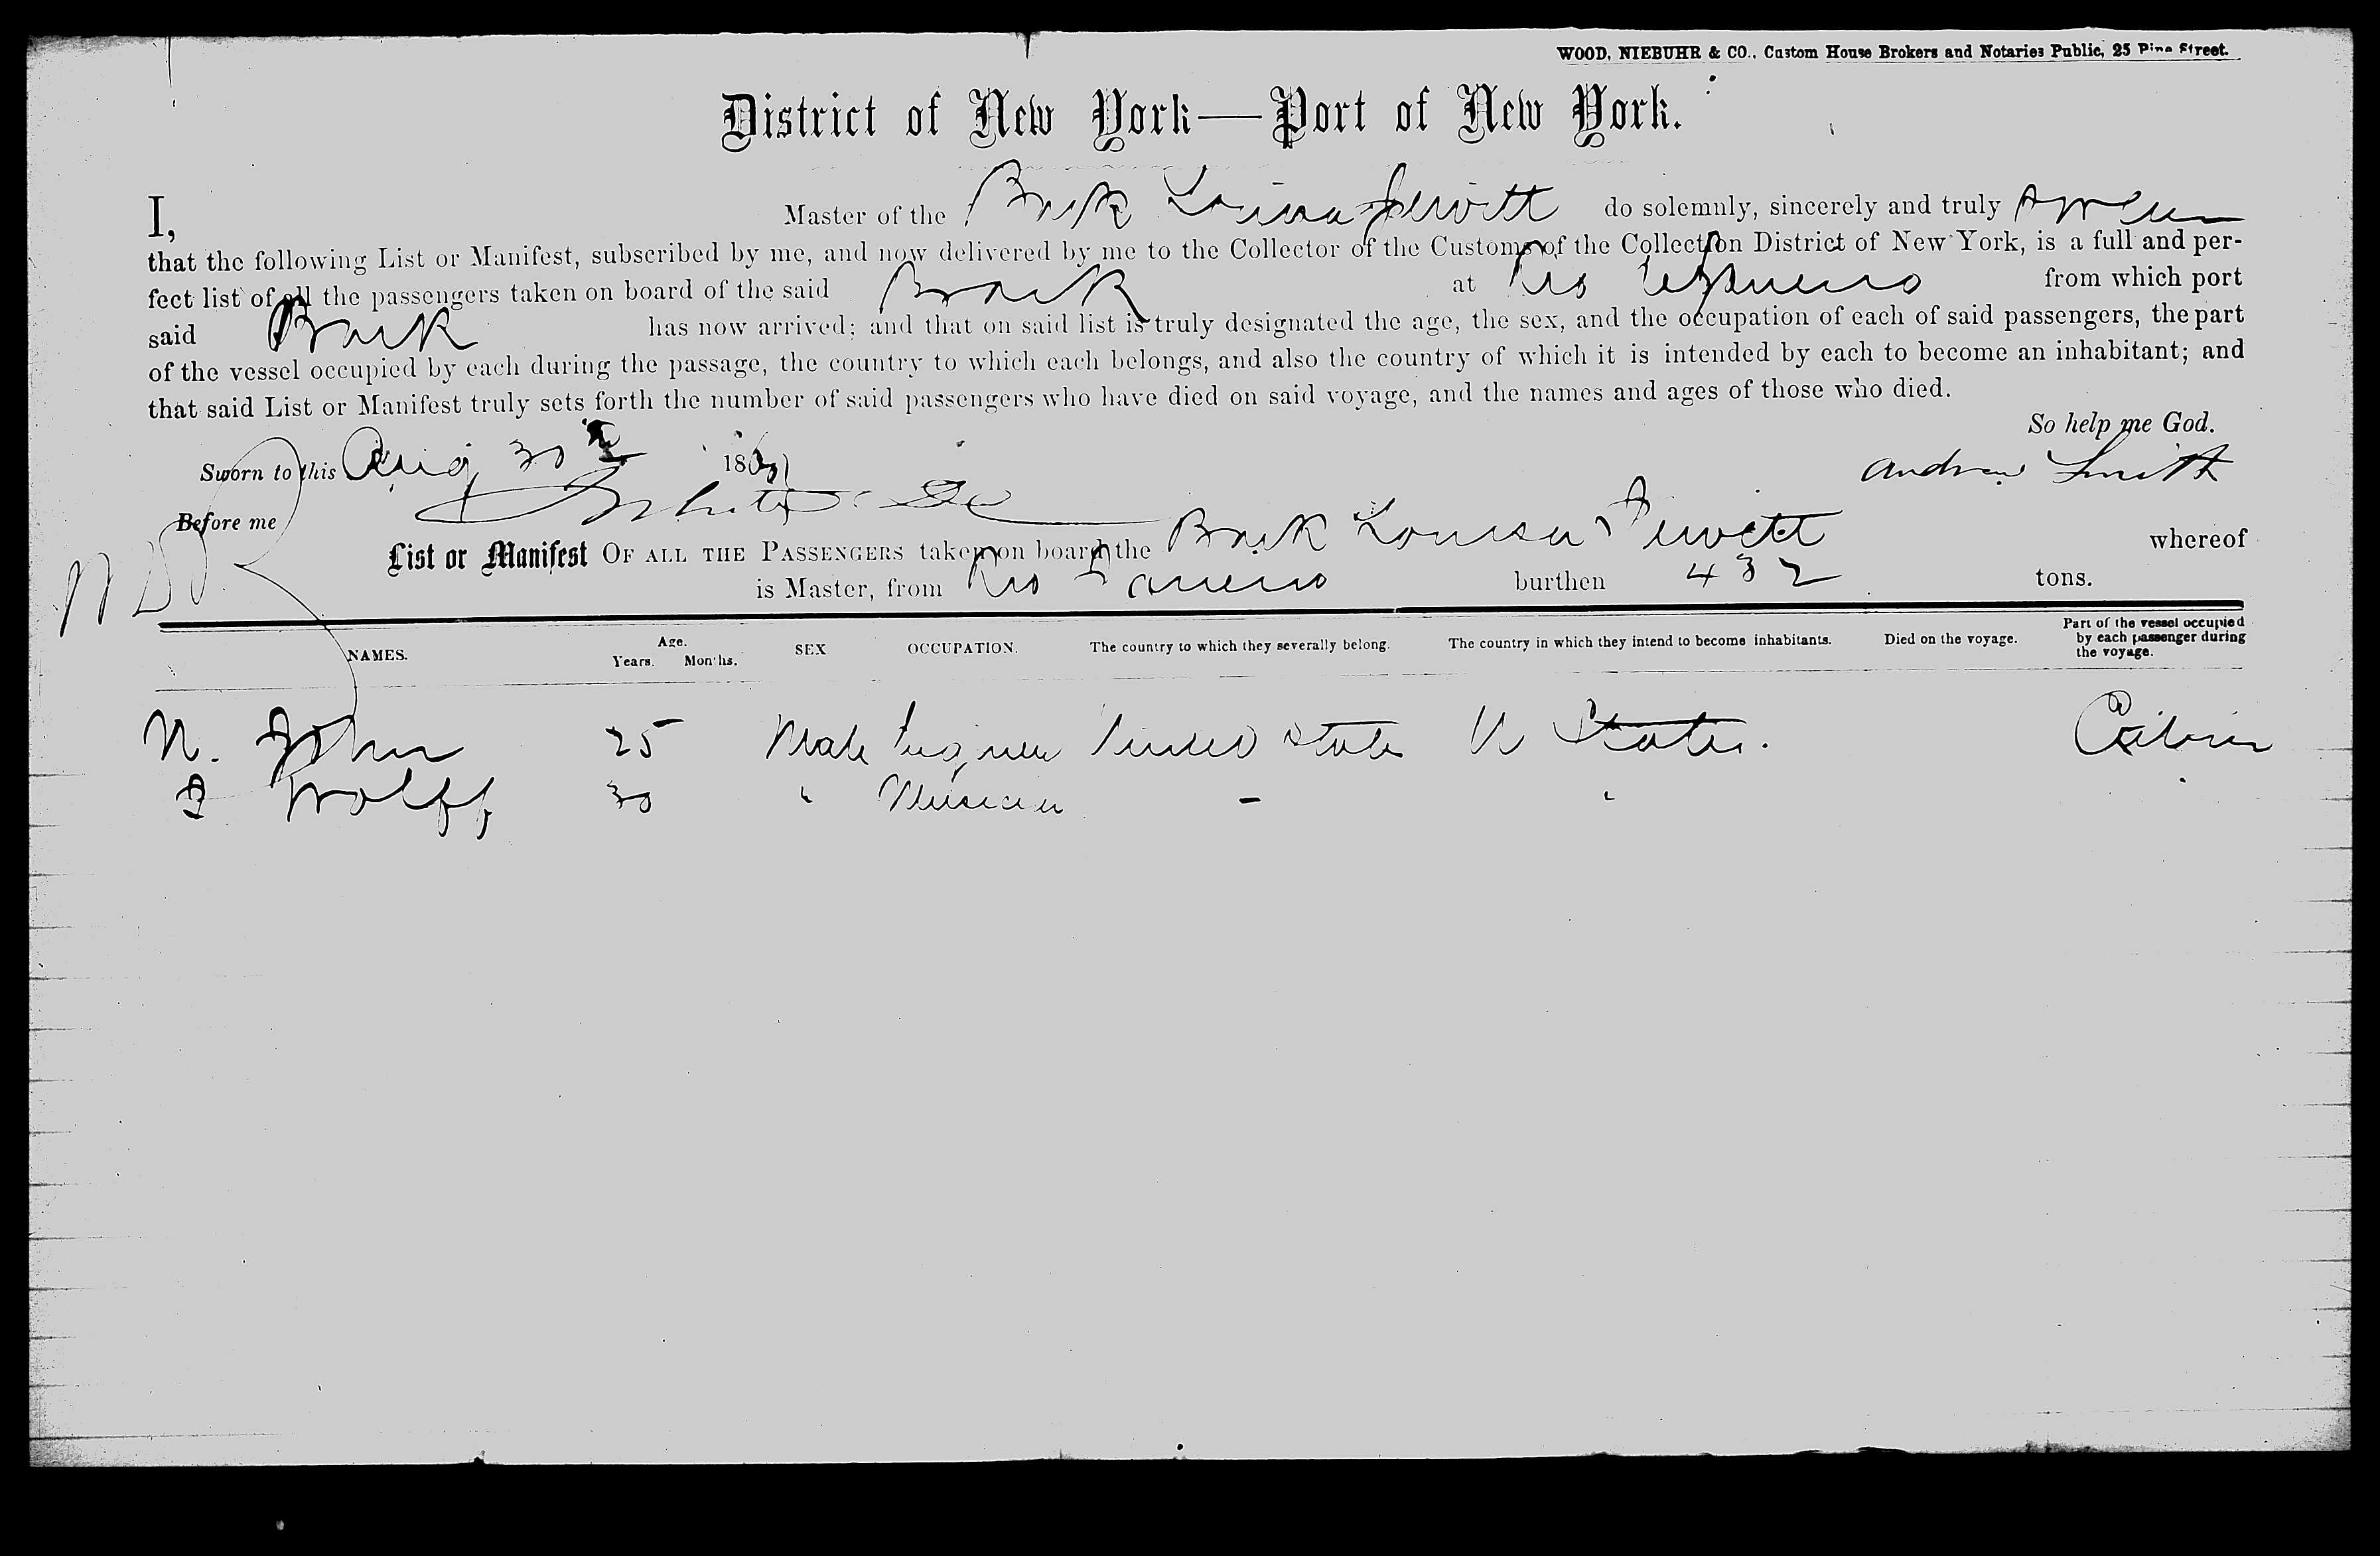 WOOD, NIEBUHR & CO., Custom House Brokers and Notaries Public, 25 Pine Street.
District of New York—Port of New York.
I, Master of the Bark Louisa Jewett do solemnly, sincerely and truly swear
that the following List or Manifest, subscribed by me, and now delivered by me to the Collector of the Customs of the Collection District of New York, is a full and per-
fect list of all the passengers taken on board of the said Bark at Rio de Janeiro from which port
said Bark has now arrived; and that on said list is truly designated the age, the sex, and the occupation of each of said passengers, the part
of the vessel occupied by each during the passage, the country to which each belongs, and also the country of which it is intended by each to become an inhabitant; and
that said List or Manifest truly sets forth the number of said passengers who have died on said voyage, and the names and ages of those who died.
So help me God.
Sworn to this Aug 30 186 Andrew Smith
Before me
List or Manifest OF ALL THE PASSENGERS taken on board the Bark Louisa Jewett whereof
is Master, from Rio Janeiro burthen 432 tons.
NAMES. Age. Years. Months. SEX OCCUPATION. The country to which they severally belong. The country in which they intend to become inhabitants. Died on the voyage. Part of the vessel occupied by each passenger during the voyage.
N. John 25 Male Engineer United States U States. Cabin
Wolff 30 " Musician - "